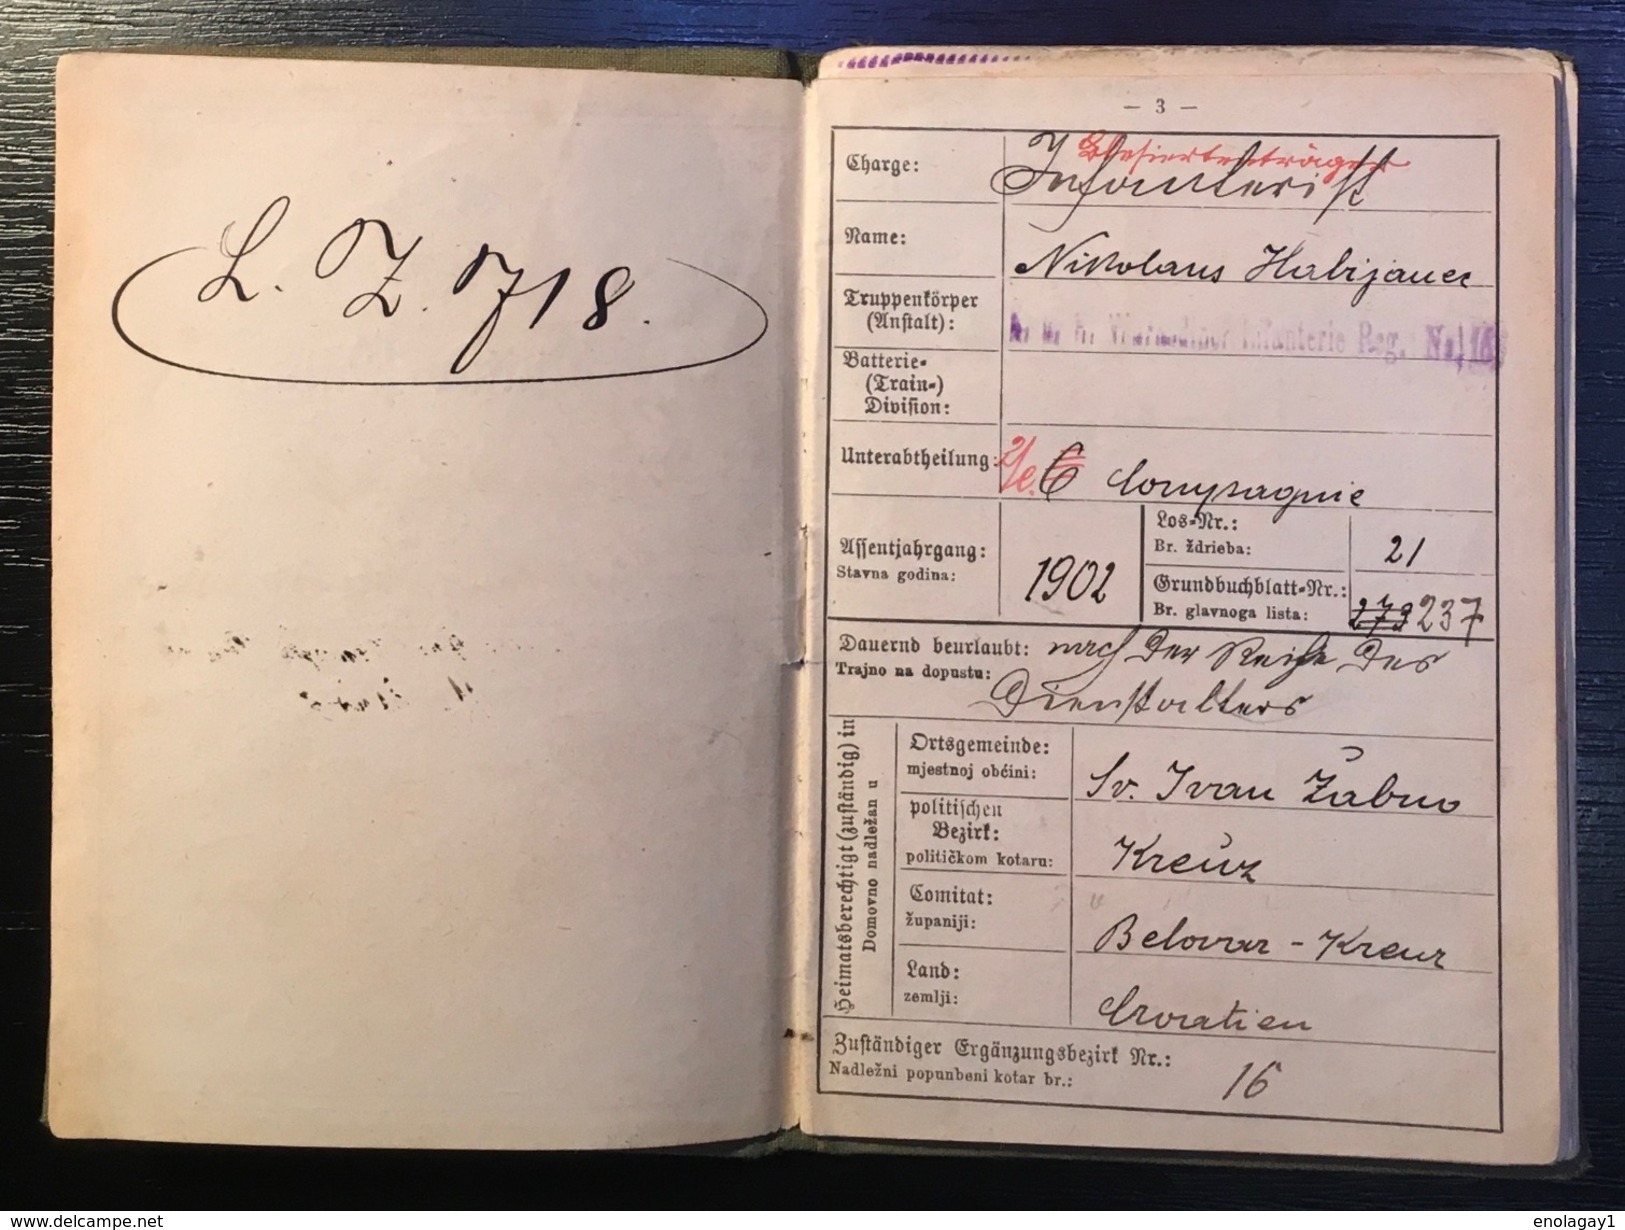 L. Z. 718.
— 3 —
Charge:
Blesiertenträger
Infanterist
Name:
Nikolaus Habijanec
Truppenkörper
(Anstalt):
Infanterie Reg. No. 16
Batterie-
(Train-)
Division:
Unterabtheilung:
2/e. 6 Compagnie
Assentjahrgang:
Stavna godina:
1902
Los-Nr.:
Br. ždrieba:
21
Grundbuchblatt-Nr.:
Br. glavnoga lista:
273 237
Dauernd beurlaubt: nach der Reihe des
Trajno na dopustu:
Dienstalters
Heimatsberechtigt (zuständig) in
Domovno nadležan u
Ortsgemeinde:
mjestnoj obćini:
Sv. Ivan Žabno
politischen
Bezirk:
političkom kotaru:
Kreuz
Comitat:
županiji:
Belovar - Kreuz
Land:
zemlji:
Croatien
Zuständiger Ergänzungsbezirk Nr.:
Nadležni popunbeni kotar br.:
16
http://www.delcampe.net
enolagay1